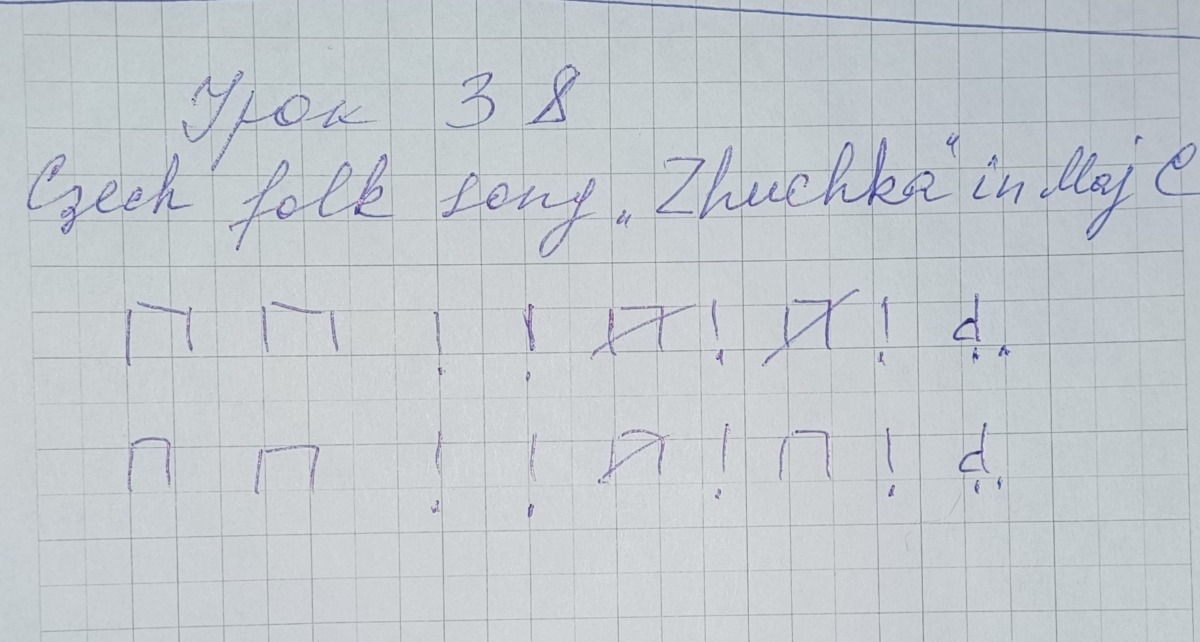 Урок 38
Czech folk song „Zhuchka“ in Maj C